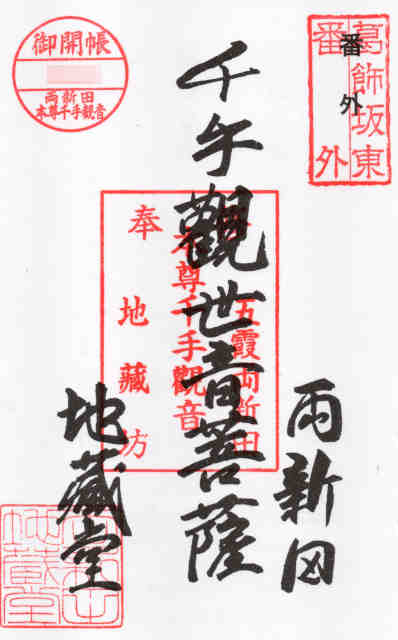 葛飾坂東
番外
番外
御開帳
両新田
本尊千手觀音
千手觀世音菩薩
五霞両新田
本尊千手觀音
奉
地藏坊
両新田
地藏堂